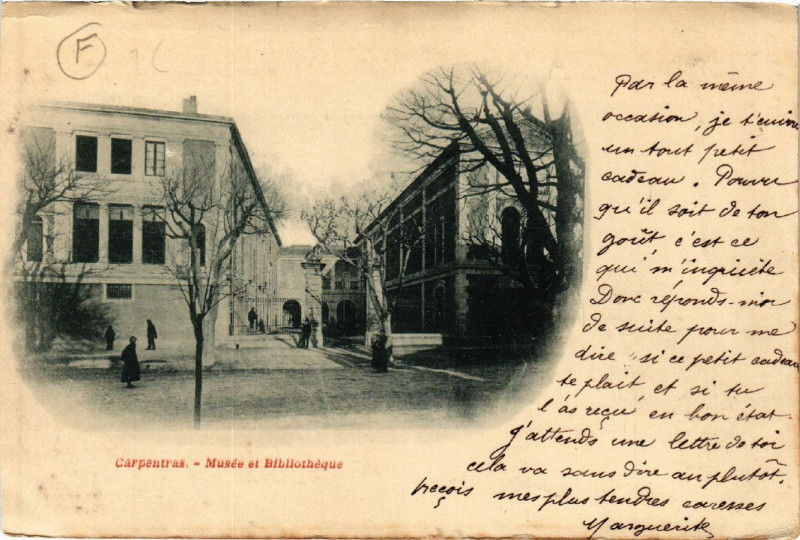 F
Par la même
occasion, je t'envoie
un tout petit
cadeau. Pourvu
qu'il soit de ton
goût c'est ce
qui m'inquiète
Donc réponds-moi
de suite pour me
dire si ce petit cadeau
te plait et si tu
l'as reçu en bon état.
J'attends une lettre de toi
cela va sans dire au plutôt.
reçois mes plus tendres caresses
Marguerite
Carpentras. - Musée et Bibliothèque